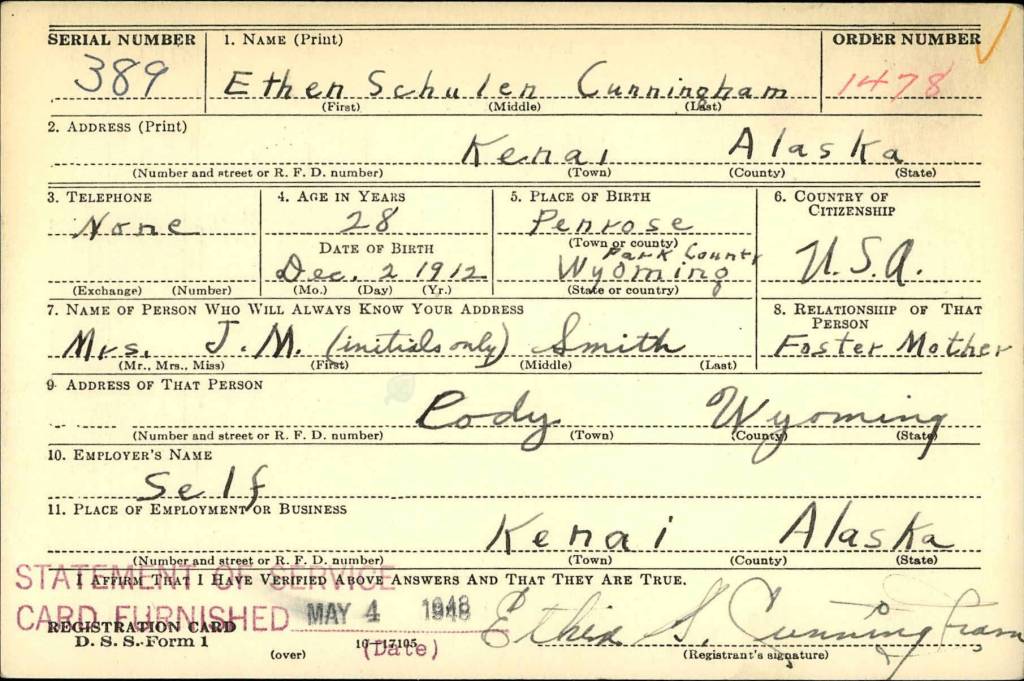 SERIAL NUMBER 1. NAME (Print) ORDER NUMBER
389 Ethen Schulen Cunningham 1478
(First) (Middle) (Last)
2. ADDRESS (Print)
Kenai Alaska
(Number and street or R. F. D. number) (Town) (County) (State)
3. TELEPHONE 4. AGE IN YEARS 5. PLACE OF BIRTH 6. COUNTRY OF CITIZENSHIP
None 28 Penrose
DATE OF BIRTH (Town or county)
Park County
Dec. 2 1912 Wyoming U.S.A.
(Exchange) (Number) (Mo.) (Day) (Yr.) (State or country)
7. NAME OF PERSON WHO WILL ALWAYS KNOW YOUR ADDRESS 8. RELATIONSHIP OF THAT PERSON
Mrs. J. M. (initials only) Smith Foster Mother
(Mr., Mrs., Miss) (First) (Middle) (Last)
9. ADDRESS OF THAT PERSON
Cody Wyoming
(Number and street or R. F. D. number) (Town) (County) (State)
10. EMPLOYER'S NAME
Self
11. PLACE OF EMPLOYMENT OR BUSINESS
Kenai Alaska
(Number and street or R. F. D. number) (Town) (County) (State)
STATEMENT OF SERVICE
I AFFIRM THAT I HAVE VERIFIED ABOVE ANSWERS AND THAT THEY ARE TRUE.
CARD FURNISHED MAY 4 1948
REGISTRATION CARD
D. S. S. Form 1 Ethen S. Cunningham
(over) 16—17105 (Date) (Registrant's signature)